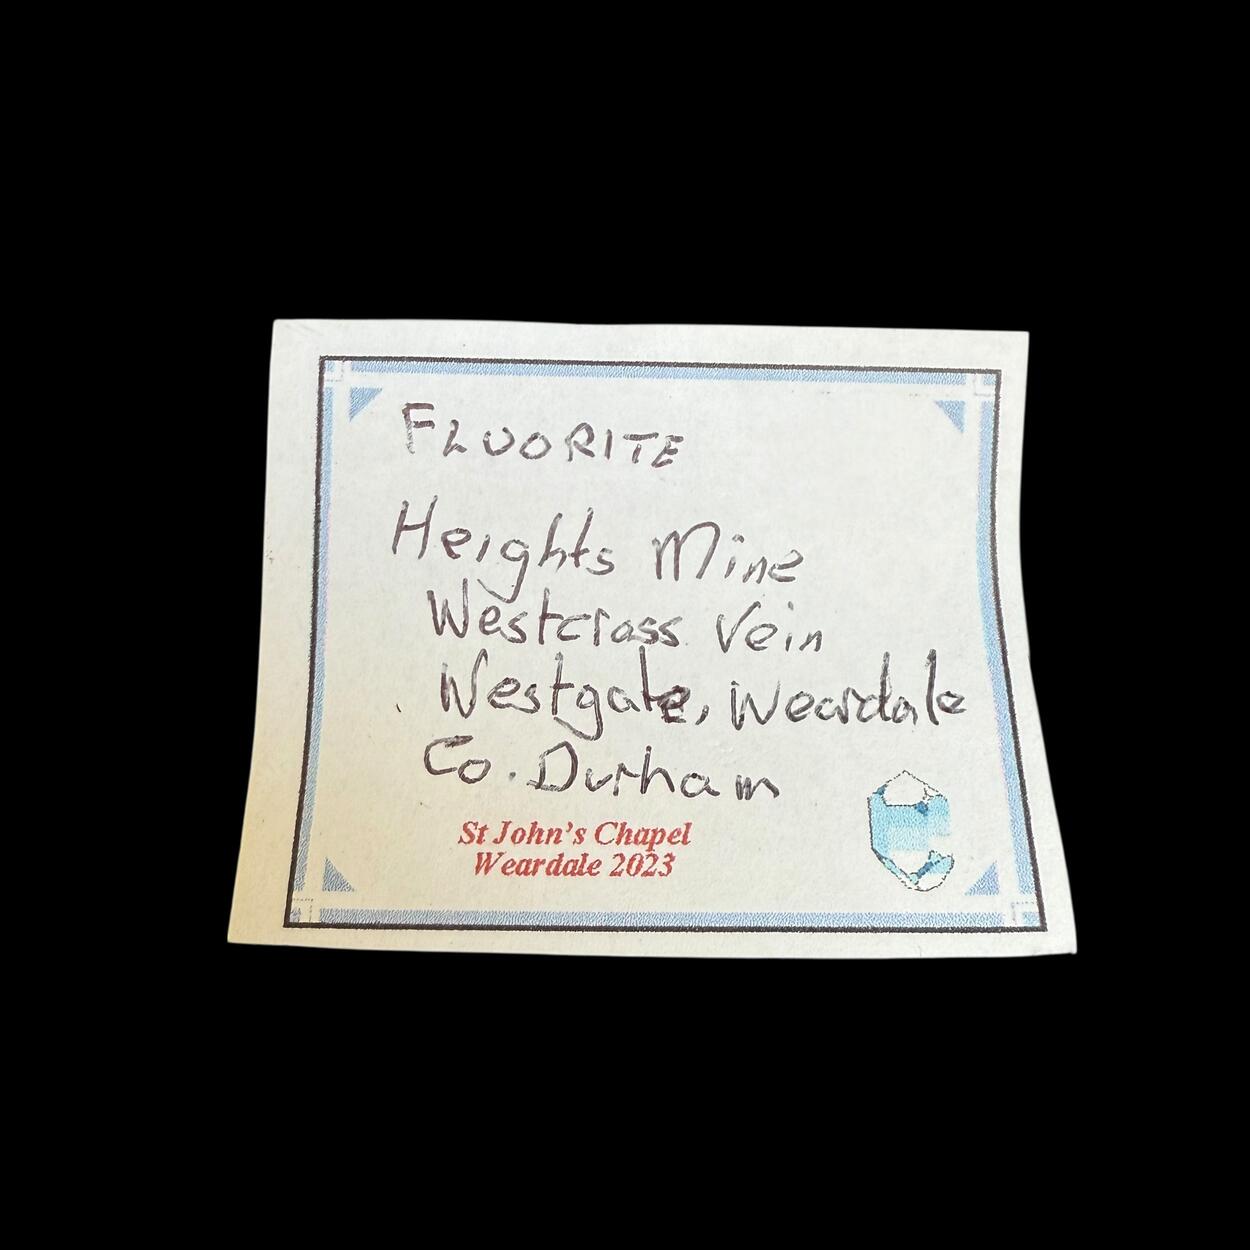 FLUORITE
Heights Mine
Westcross Vein
Westgate, Weardale
Co. Durham
St John's Chapel
Weardale 2023